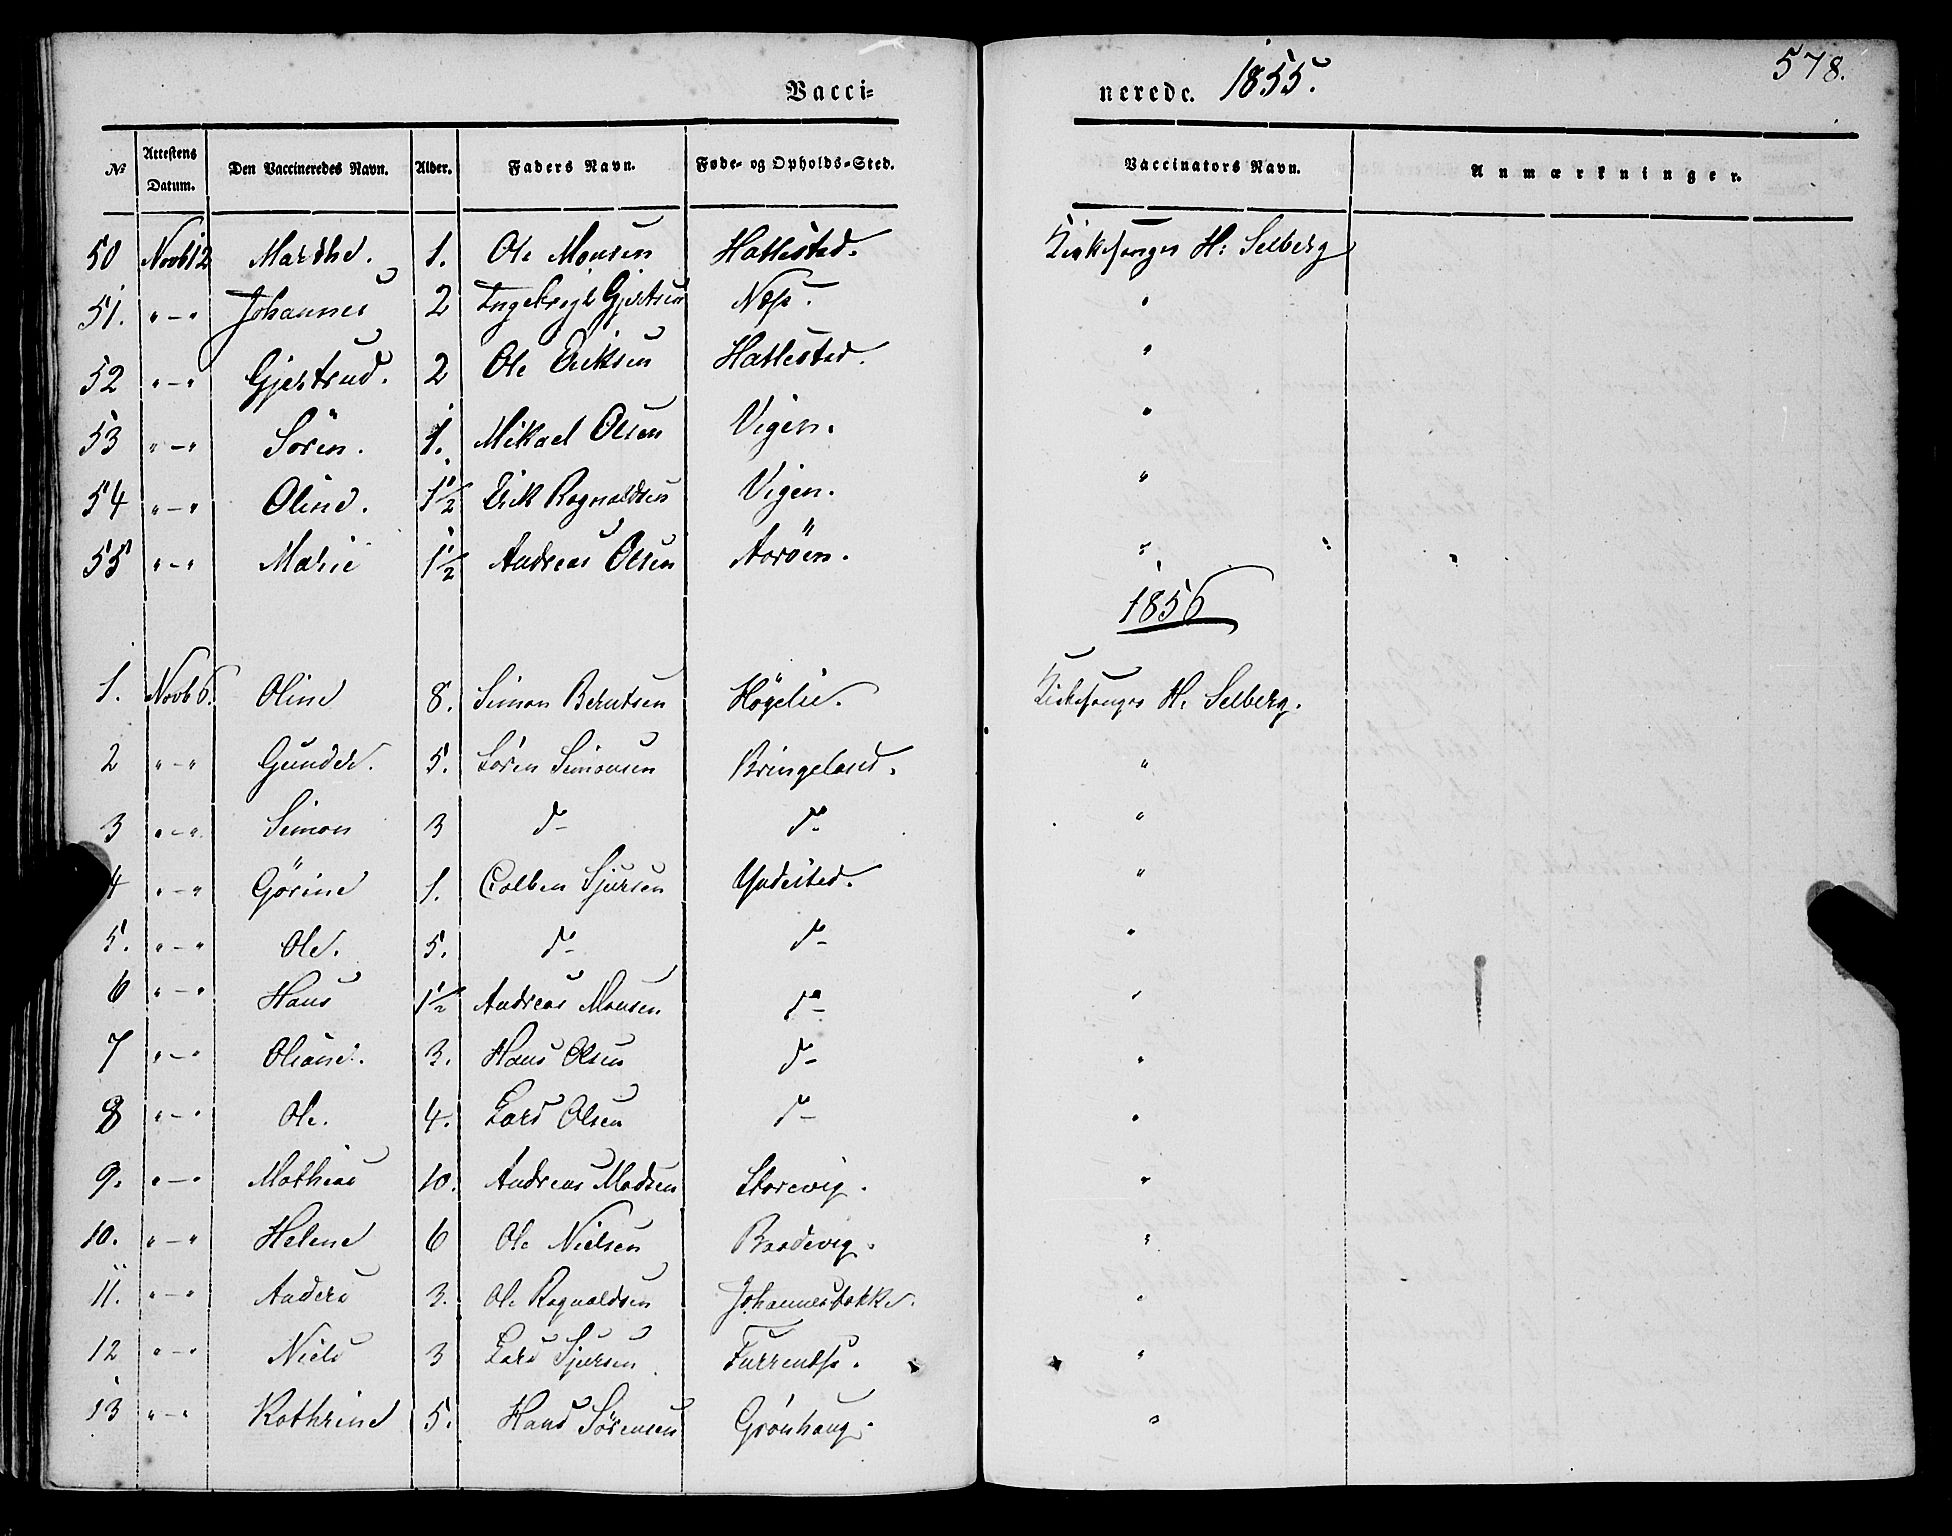 Vacci-
nerede. 1855.
578.
№ | Attestens Datum. | Den Vaccineredes Navn. | Alder. | Faders Navn. | Føde- og Opholds-Sted. | Vaccinators Navn. | Anmærkninger.
50 | Novb 12 | Marthe. | 1. | Ole Monsen | Hatlestad. | Kirkesanger H: Selberg
51. | "–" | Johannes | 2 | Ingebrigt Gjertsen | Næs. | "
52 | "–" | Gjertrud. | 2 | Ole Eriksen | Hatlestad. | "
53 | "–" | Søren. | 1. | Mikael Olsen | Vigen. | "
54 | "–" | Oline. | 1½ | Erik Rognaldsen | Vigen. | "
55 | "–" | Marie | 1½ | Andreas Olsen | Aarøen. | "
1856
1. | Novb 6. | Oline | 8. | Simon Berntsen | Høgelie. | Kirkesanger H. Selberg.
2 | "–" | Gunder. | 5. | Søren Simonsen | Bringeland. | "
3 | "–" | Simon | 3 | d– | d– | "
4 | "–" | Gørine | 1. | Colben Sjursen | Yndestad. | "
5. | "–" | Ole. | 5. | d– | d– | "
6 | "–" | Hans | 1½ | Andreas Monsen | d– | "
7 | "–" | Oliane. | 3. | Hans Olsen | d– | "
8 | "–" | Ole. | 4. | Lars Olsen | d– | "
9. | "–" | Mathias | 10. | Andreas Madsen | Storevig. | "
10. | "–" | Helene | 6 | Ole Nielsen | Bardevig. | "
11. | "–" | Anders | 3. | Ole Rognaldsen | Johannesbakke. | "
12 | "–" | Niels | 3 | Lars Sjursen | Furrenæs. | "
13 | "–" | Kathrine | 5. | Hans Sørensen | Grønhaug. | "